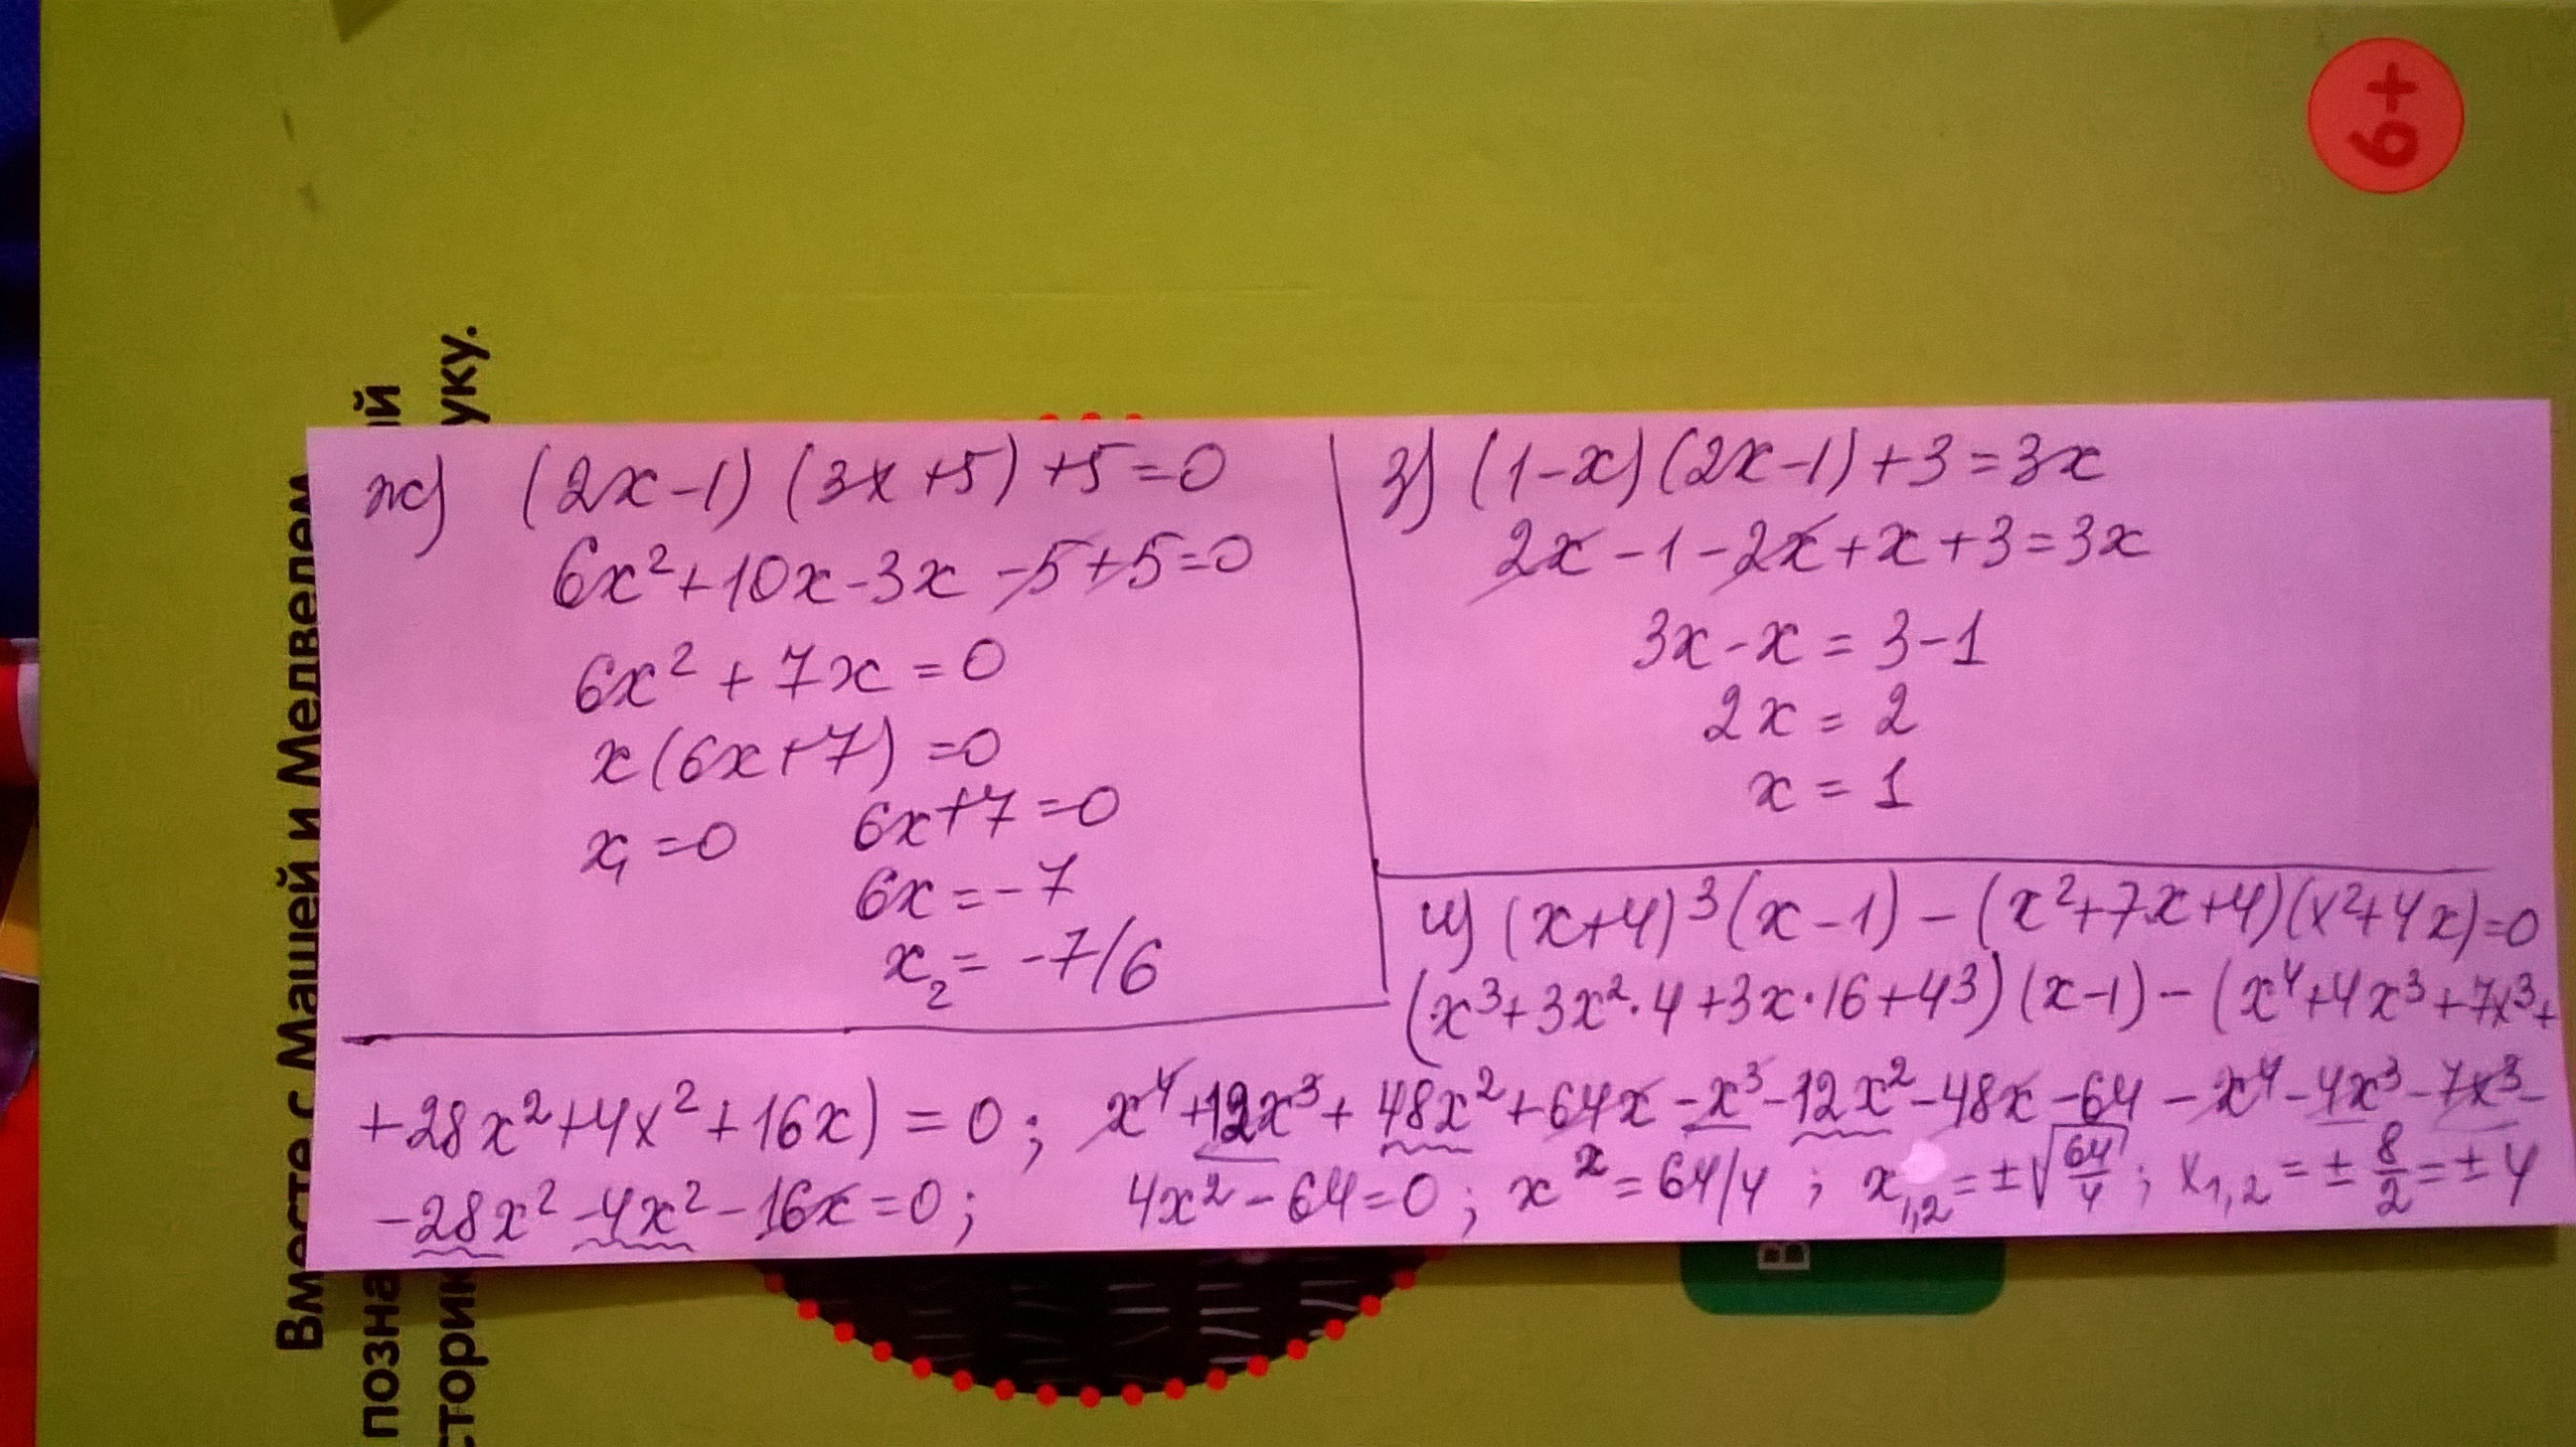 6+
Вместе с Машей и Медведем
позна
ый
сторик
уку.
ж) (2x-1) (3x+5) +5=0
6x²+10x-3x -5+5=0
6x² + 7x = 0
x(6x+7) =0
x₁ =0 6x+7=0
6x =-7
x₂ = -7/6
з) (1-x)(2x-1)+3=3x
2x -1-2x+x+3=3x
3x-x = 3-1
2x = 2
x = 1
и) (x+4)³(x-1) - (x²+7x+4)(x²+4x)=0
(x³+3x²·4+3x·16+4³)(x-1)-(x⁴+4x³+7x³+
+28x²+4x²+16x) = 0; x⁴+12x³+48x²+64x-x³-12x²-48x-64-x⁴-4x³-7x³-
-28x²-4x²-16x=0; 4x²-64=0; x²=64/4; x₁,₂=±√64/4; x₁,₂=±8/2=±4
В